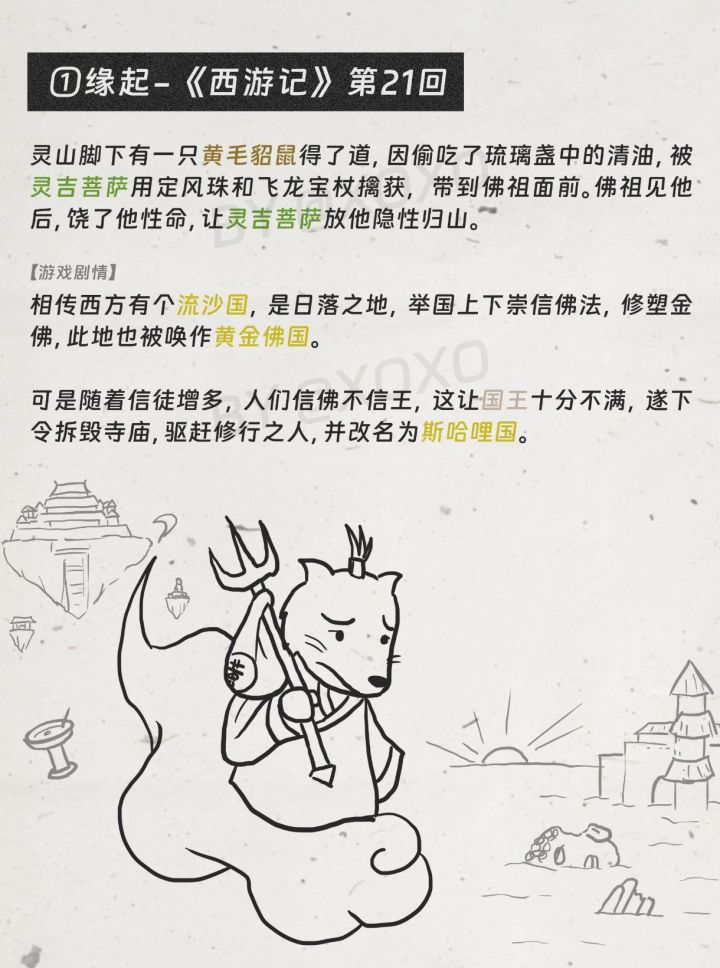 ①缘起-《西游记》第21回
灵山脚下有一只黄毛貂鼠得了道,因偷吃了琉璃盏中的清油,被
灵吉菩萨用定风珠和飞龙宝杖擒获,带到佛祖面前。佛祖见他
后,饶了他性命,让灵吉菩萨放他隐性归山。
【游戏剧情】
相传西方有个流沙国,是日落之地,举国上下崇信佛法,修塑金
佛,此地也被唤作黄金佛国。
可是随着信徒增多,人们信佛不信王,这让国王十分不满,遂下
令拆毁寺庙,驱赶修行之人,并改名为斯哈哩国。
BY @XOXO
BY @XOXO